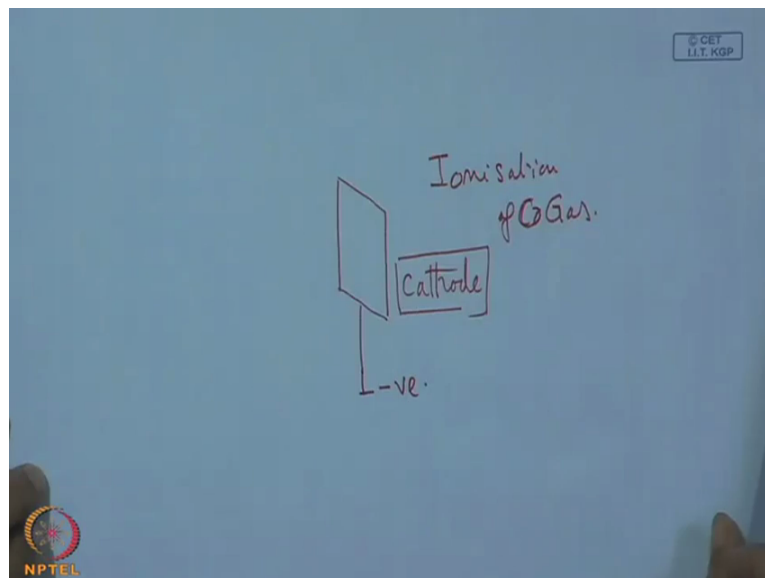 © CET
I.I.T. KGP
Ionisation
of Gas.
Cathode
-ve.
NPTEL